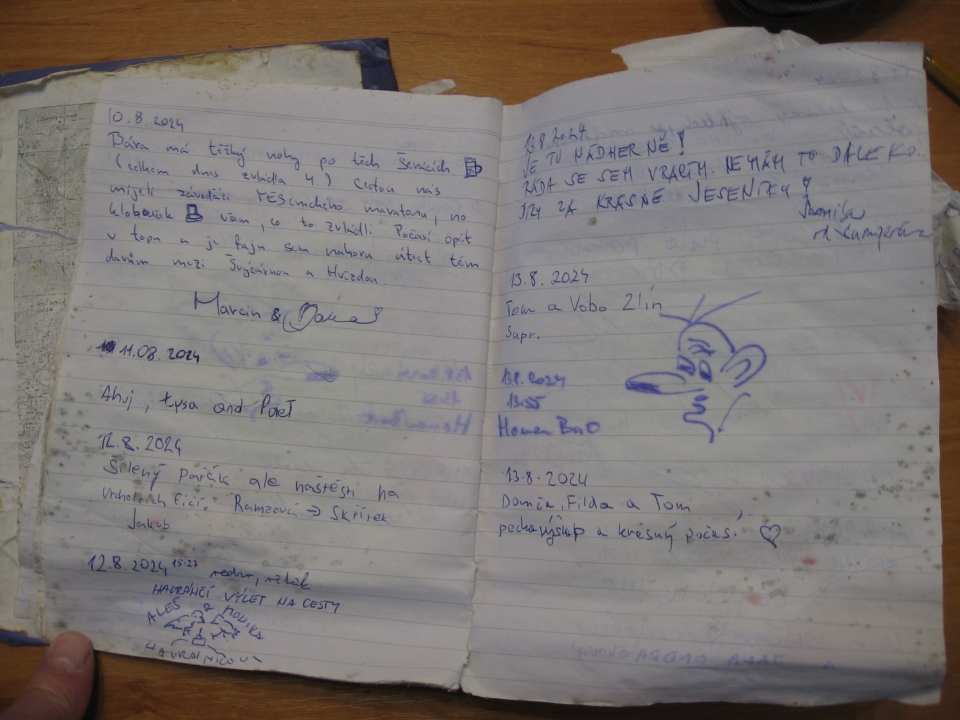 10.8.2024
Bára má těžký nohy po těch Šerácích
(celkem dnes zvládla 4) Cestou nás
míjeli závodáci maratonu, no
klobouk vám, co to zvládli. Počasí opět
v topu a je fajn sem nahoru utéct těm
davům mezi a Hvězdou.
Marcin & Bára
11.08.2024
Ahoj, Łysa and Paweł
12.8.2024
Šílený pařák ale naštěstí na
vrcholech fičí. Ramzová → Skřítek
Jakub
12.8.2024 15:27
HAVRÁNČÍ VÝLET NA CESTY
ALEŠ & MONIKA
13.8.2024
JE TU NÁDHERNĚ!
RÁDA SE SEM VRACÍM. NEMÁM TO DALEKO.
DÍKY ZA KRÁSNÉ JESENÍKY!
13.8.2024
Tom a Vobo Zlín
Supr.
13.8.2024
13:55
13.8.2024
Domča, Filda a Tom
pecka výšlap a krásný počasí